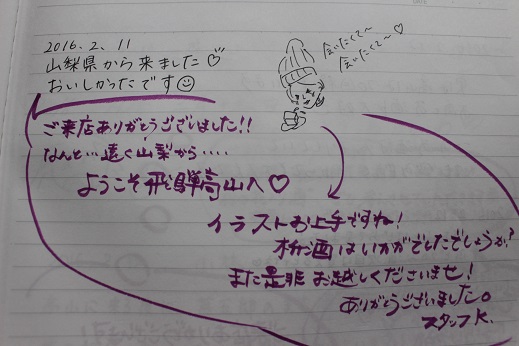 2016.2.11
山梨県から来ました♡
おいしかったです☺
会いたくて〜
会いたくて〜♡
ご来店ありがとうございました!!
なんと…遠く山梨から‥‥
ようこそ飛騨高山へ♡
イラストお上手ですね!
枡酒はいかがでしたでしょうか?
また是非お越しくださいませ!
ありがとうございました。
スタッフK.